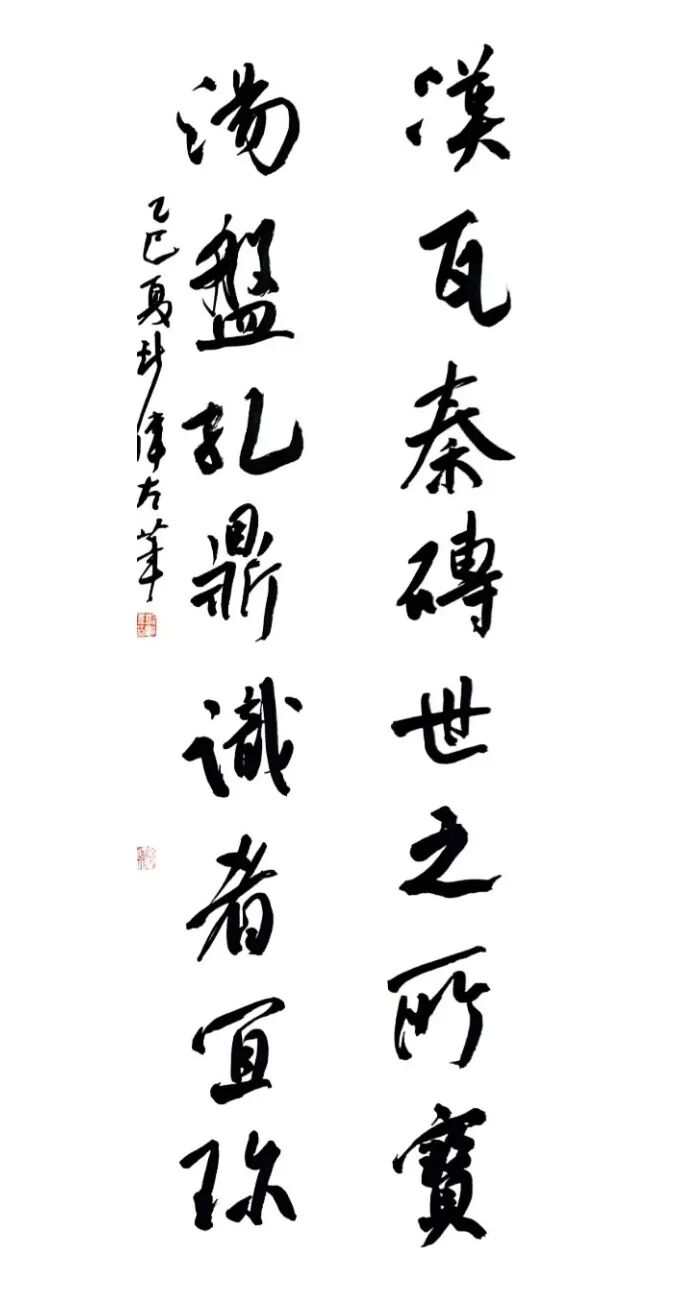 漢瓦秦磚世之所寶
湯盤孔鼎識者宜珍
乙巳夏偉左筆